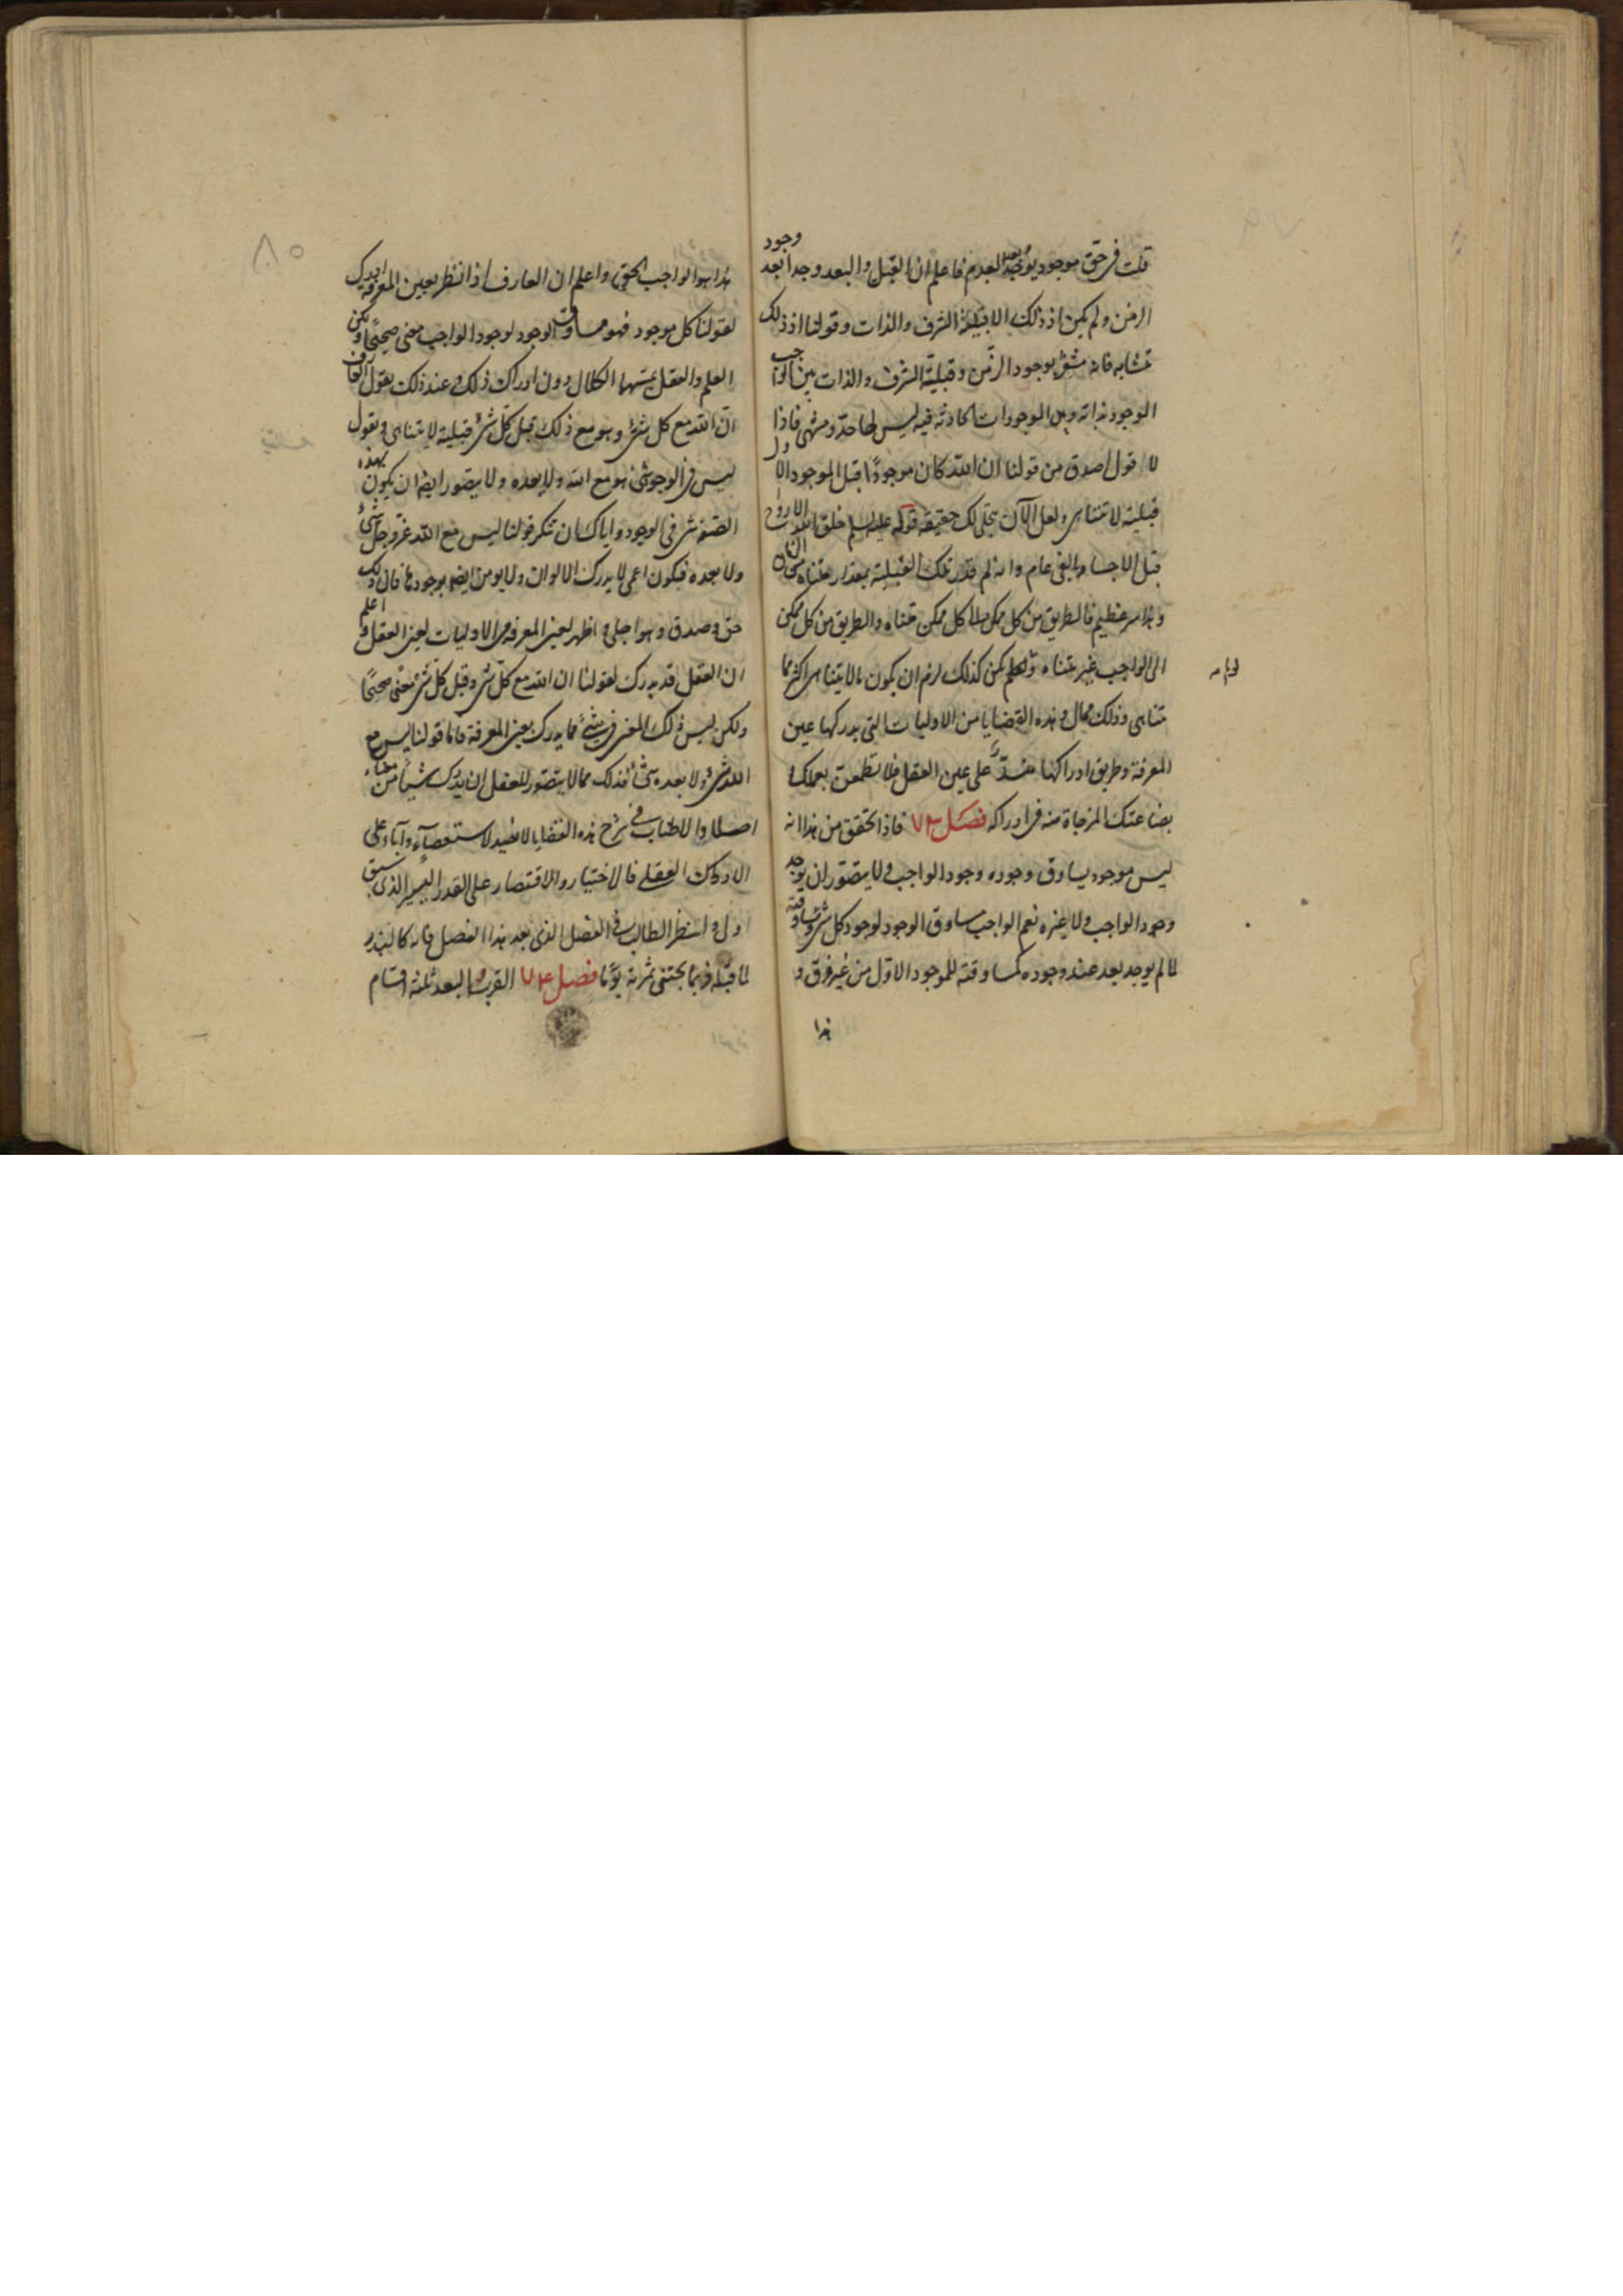 قلت فى حق موجود يوجد بعد العدم فاعلم ان القبل والبعد وجدا بعد وجود
الزمن ولم يكن اذ ذلك الا قبلية الشرف والذات وقولنا اذ ذلك
تشابه فانه مشعر بوجود الزمن وقبلية الشرف والذات بين الواجب
الوجود بذاته وبين الموجودات الحادثة فيه ليس لها حد ومنتهى فاذا
لا قول اصدق من قولنا ان الله كان موجودًا قبل الموجود الاول
قبلية لا تتناهى ولعل الآن يتجلى لك حقيقة قوله عليه السلم خلق الله الارواح
قبل الاجساد بالفى عام وانه لم قدر تلك القبلية بمقدار متناه
وهذا سر عظيم فالطريق من كل ممكن الى كل ممكن متناه والطريق من كل ممكن
الى الواجب غير متناه ولو لم يكن كذلك لزم ان يكون ما لا يتناهى اكثر مما
يتناهى وذلك محال وهذه القضايا من الاوليات التى يدركها عين
المعرفة وطريق ادراكها منسد على عين العقل فلا تطمعن بعملك و
بضاعتك المزجاة منه فى ادراكه فصل ٧٣ فاذا تحقق من هذا انه
ليس موجود يساوق وجوده وجود الواجب ولا يتصور ان يوجد
وجود الواجب ولا غيره نعم الواجب مساوق الوجود لوجود كل شئ ومساوقته
لما لم يوجد بعد عند وجوده كمساوقته للموجود الاول من غير فرق و
هذا
٨٥
هذا هو الواجب الحق واعلم ان العارف اذا نظر بعين المعرفة ادرك
لقولنا كل موجود فهو مساوق الوجود لوجود الواجب معنى صحيحًا ولكن
العلم والعقل عينهما الكلال دون ادراك ذلك وعند ذلك يقول العارف
ان الله مع كل شئ وهو مع ذلك قبل كل شئ قبلية لا يتناهى ويقول
ليس فى الوجود شئ هو مع الله ولا بعده ولا يتصور ايضا ان يكون بهذه
الصفة شئ فى الوجود واياك ان تنكر قولنا ليس مع الله عز وجل شئ
ولا بعده فيكون اعمى لا يدرك الالوان ولا يومن ايضا بوجودها فان ذلك
حق وصدق وهو اجلى واظهر لعين المعرفة من الاوليات لعين العقل واعلم
ان العقل قد يدرك لقولنا ان الله مع كل شئ وقبل كل شئ معنى صحيحًا
ولكن ليس ذلك المعنى فى شئ مما يدرك بعين المعرفة فاما قولنا ليس مع
الله شئ ولا بعده شئ فذلك مما لا يتصور للعقل ان يدرك شيئا من معناه
اصلا والاطناب فى شرح هذه القضايا لا يفيد الا ستعصاء وآباء على
الادراك العقلى فالاختيار والاقتصار على القدر اليسير الذى سبق
اولى ولينظر الطالب فى الفصل الذى بعد هذا الفصل فانه كالبذر
لما قبله فربما يجتنى ثمرته يومًا فصل ٧٤ القرب والبعد ثلثة اقسام